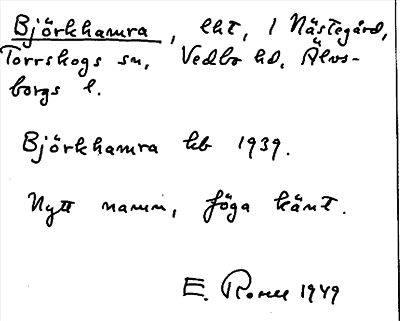 Björkhamra, lht, 1 Nästegård,
Torrskogs sn, Vedbo hd, Älvs-
borgs l.
Björkhamra kb 1939.
Nytt namn, föga känt.
E. 1949